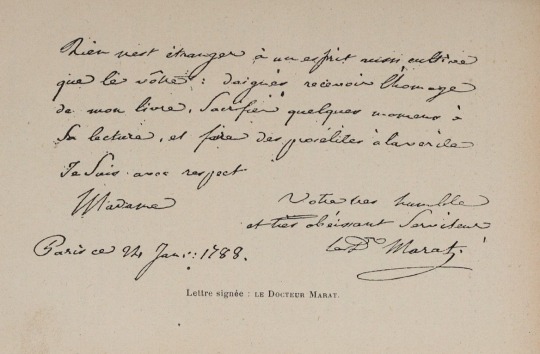 Rien n'est étranger à un esprit aussi cultivé
que le vôtre : daignés recevoir l'homage
de mon livre, sacrifier quelques momens à
sa lecture, et faire des prosélites à la verite
Je suis avec respect
Madame
Votre tres humble
et tres obéissant Serviteur
Paris ce 24 Janv: 1788.
le Dr Marat
Lettre signée : LE DOCTEUR MARAT.